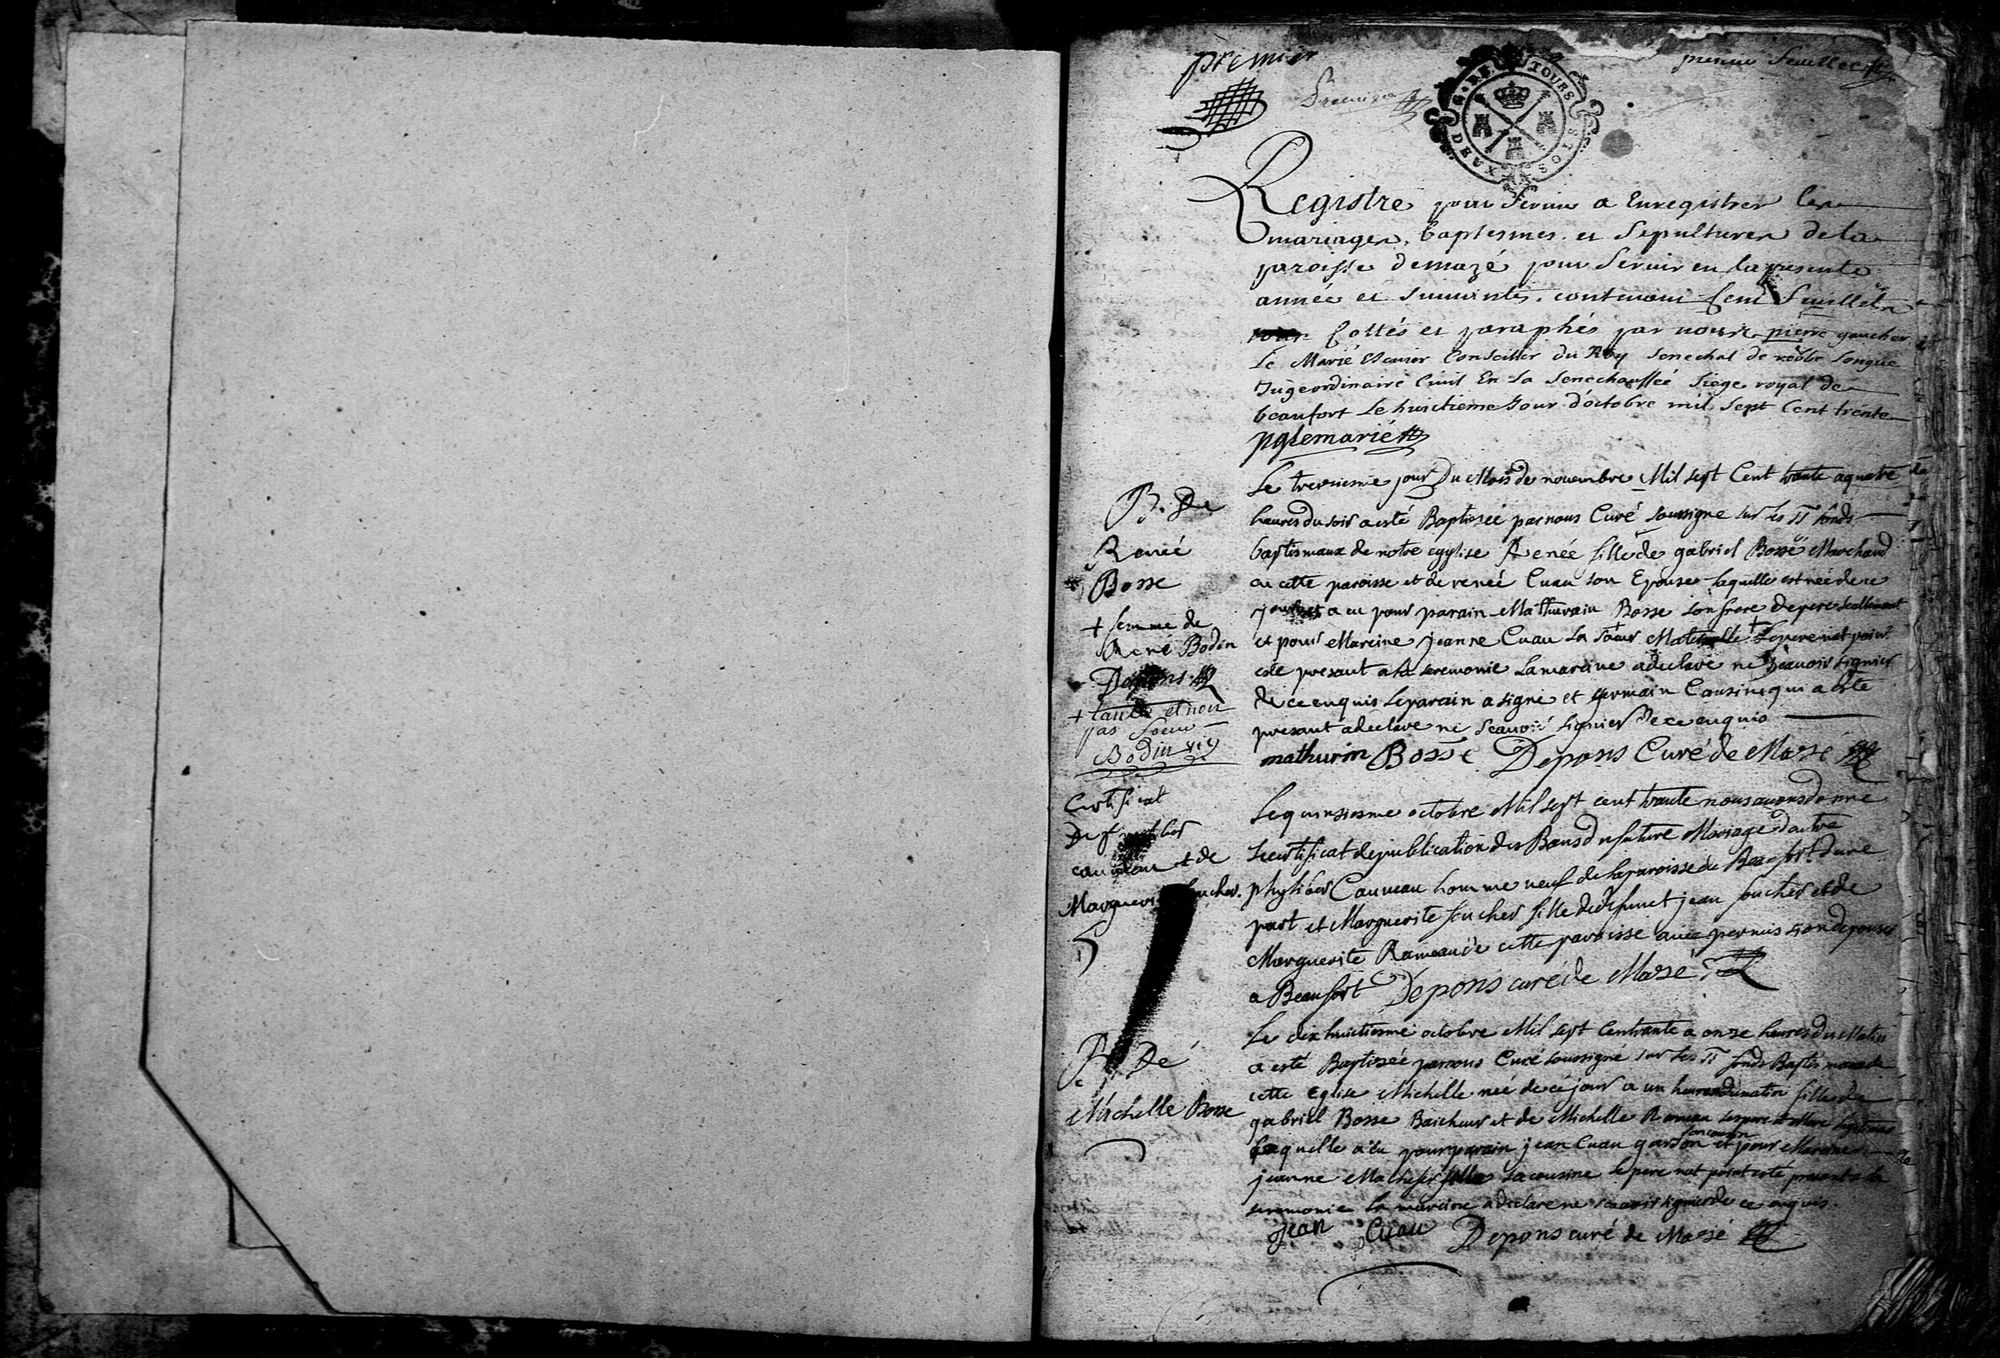 premier
premier feuillet
GRE TOURS
DEUX SOLS
Registre pour servir a Enregistrer les
mariages, baptesmes et sepultures de la
paroisse de mazé pour servir en la presente
année et suivantes, contenant Cent feuillets
Cottés et paraphés par nous pierre gaucher
Le Marié Escuier Conseiller du Roy senechal de robbe longue
Juge ordinaire Civil En La senechaussée siege royal de
beaufort Le huictieme Jour d'octobre mil sept Cent trente
pglemarié
B. De
Renée
Bosse
+ femme de
René Bodin
Depons
+ tante et non
pas soeur
Bodin
Le jour Du Mois de novembre Mil sept Cent trante a quatre
heures du soir a esté Baptisée par nous Curé soussigne sur les fonds
baptismaux de notre egglise Renée fille de gabriel Bosse Marchand
en cette paroisse et de reneé Cuau son Epouse laquelle est née de ce
jour et a eu pour parain Mathurain Bosse son frere de pere seullement
et pour Mareine jeanne Cuau sa soeur Maternelle + Le pere nat point
esté presant a la seremonie La mareine a declaré ne sçauoir signier
de ce enquis Le parain a signe et germain Cousin qui a esté
presant a declare ne sçauoir signier de ce enquis
mathurin Bosse Depons Curé de Mazé
Certificat
De
cauueau et de
Marguerite foucher
Le quinsiesme octobre Mil sept cent trante nous auons donne
Le certificat de publication des Bans du future Mariage d'autre
Cauueau homme neuf de la paroisse de Beaufort dune
part et Marguerite foucher fille de deffunct jean foucher et de
Marguerite Rameau de cette paroisse auec permission depouser
a Beaufort Depons curé de Mazé
B. De
Michelle Bosse
Le dix huictiesme octobre Mil sept Cent trante a onze heures du Matin
a esté Baptissée par nous Curé soussigné sur les fonds Baptismaux de
cette Eglise Michelle neé de ce jour a un heure du matin fille de
gabriel Bosse et de Michelle Rameau ses pere et Mere
Laquelle a eu pour parain jean Cuau garson son cousin et pour Mareine
jeanne sa cousine Le pere nat point esté present a la
seremonie La mareine a declare ne scauoir signier de ce enquis.
jean Cuau Depons curé de Mazé